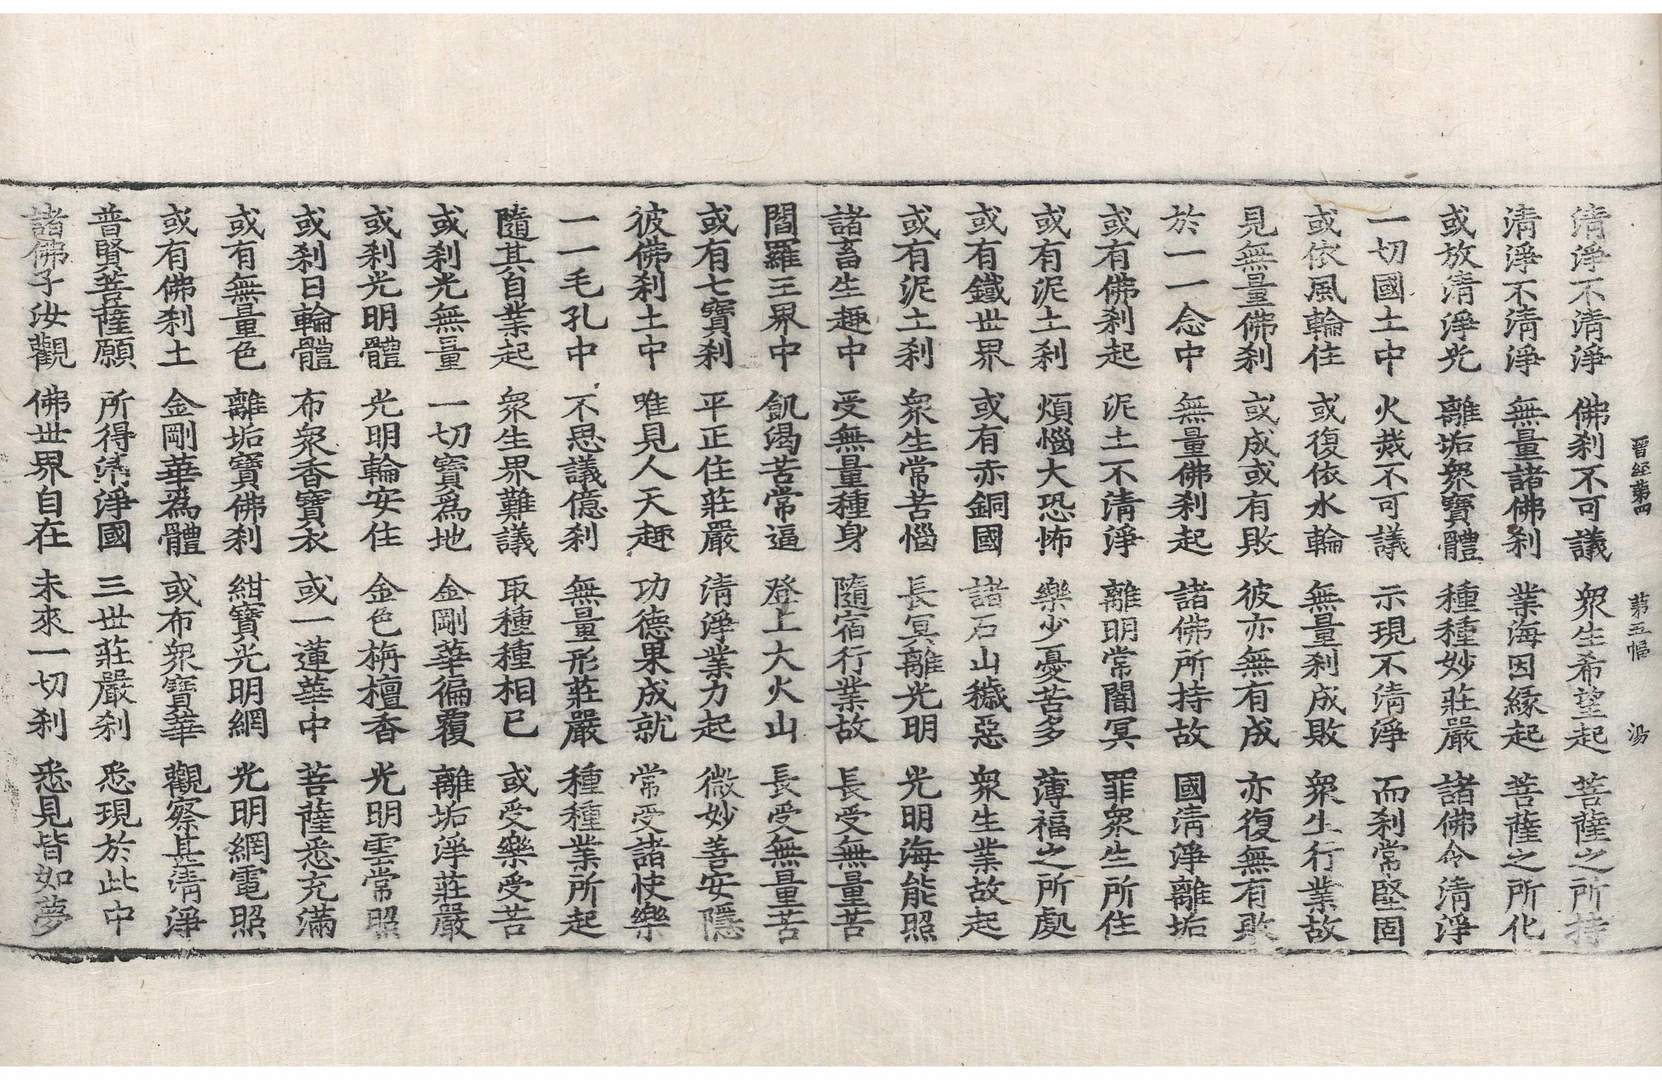 晋經第四　第五幅　湯
清淨不清淨　佛刹不可議　衆生希望起　菩薩之所持
清淨不清淨　無量諸佛刹　業海因緣起　菩薩之所化
或放清淨光　離垢衆寶體　種種妙莊嚴　諸佛令清淨
一切國土中　火烖不可議　示現不清淨　而刹常堅固
或依風輪住　或復依水輪　無量刹成敗　衆生行業故
見無量佛刹　或成或有敗　彼亦無有成　亦復無有敗
於一一念中　無量佛刹起　諸佛所持故　國清淨離垢
或有佛刹起　泥土不清淨　離明常闇冥　罪衆生所住
或有泥土刹　煩惱大恐怖　樂少憂苦多　薄福之所處
或有鐵世界　或有赤銅國　諸石山穢惡　衆生業故起
或有泥土刹　衆生常苦惱　長冥離光明　光明海能照
諸畜生趣中　受無量種身　隨宿行業故　長受無量苦
閻羅王界中　飢渴苦常逼　登上大火山　長受無量苦
或有七寶刹　平正住莊嚴　清淨業力起　微妙善安隱
彼佛刹土中　唯見人天趣　功德果成就　常受諸快樂
一一毛孔中　不思議億刹　無量形莊嚴　種種業所起
隨其自業起　衆生界難議　取種種相已　或受樂受苦
或刹光無量　一切寶爲地　金剛華徧覆　離垢淨莊嚴
或刹光明體　光明輪安住　金色栴檀香　光明雲常照
或刹日輪體　布衆香寶衣　或一蓮華中　菩薩悉充滿
或有無量色　離垢寶佛刹　紺寶光明網　光明網電照
或有佛刹土　金剛華爲體　或布衆寶華　觀察甚清淨
普賢菩薩願　所得清淨國　三世莊嚴刹　悉現於此中
諸佛子汝觀　佛世界自在　未來一切刹　悉見皆如夢